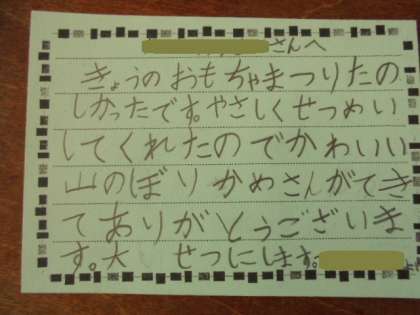 さんへ
きょうのおもちゃまつりたの
しかったです。やさしくせつめい
してくれたのでかわいい
山のぼりかめさんができ
てありがとうございま
す。大 せつにします。